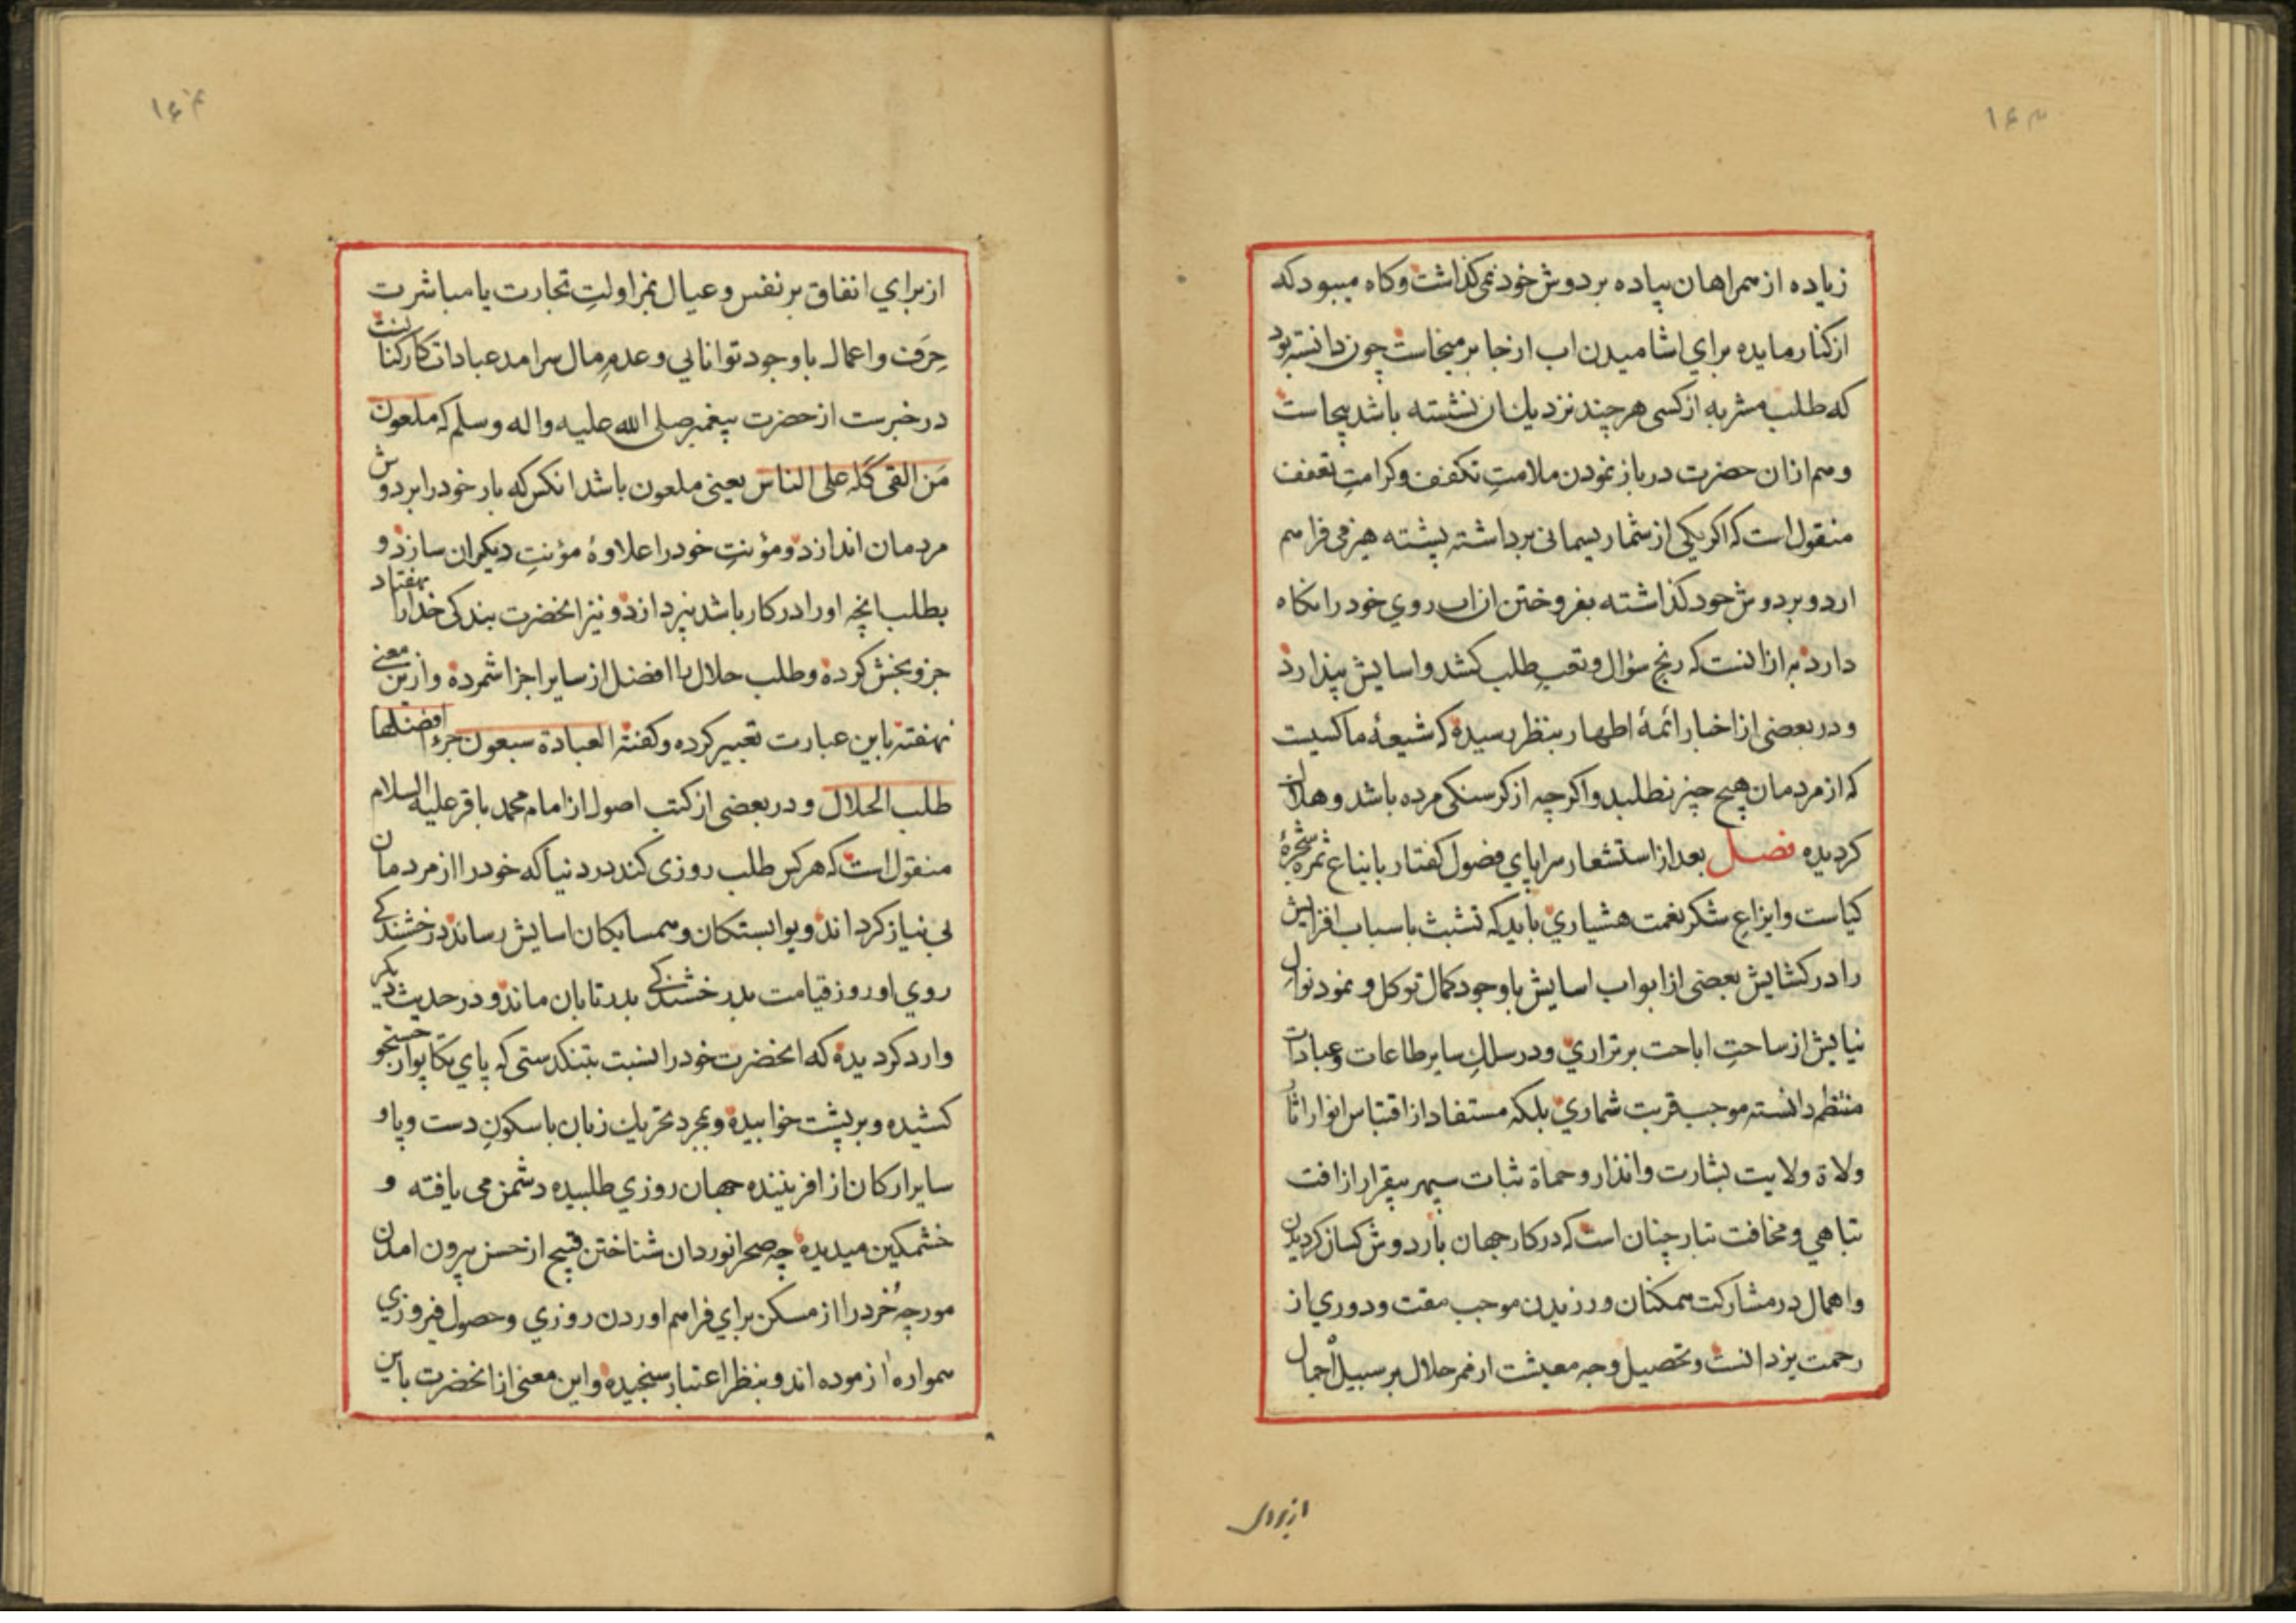 ۱۶۳
زیاده از همراهان پیاده بر دوش خود نمیکذاشت و کاه میبود که
از کنار مایده برای اشامیدن اب از جا بر میخاست چون دانسته بود
که طلب مشربه از کسی هر چند نزدیك ان نشسته باشد بیجاست
و هم ازان حضرت در باز نمودن ملامتِ تکفف و کرامتِ تعفف
منقول است که اکر یکی از شما ریسمانی برداشته پشته هیزمی فراهم
ارد و بر دوش خود کذاشته بفروختن ازان روي خود را نکاه
دارد به ازانست که رنج سؤال و تعبِ طلب کشد و اسایش پندارد
و در بعضی از اخبار ائمهٔ اطهار بنظر رسیده که شیعهٔ ما کسیت
که از مردمان هیچ چیز نطلبد و اکر چه از کرسنکی مرده باشد و هلاك
کردیده فصل بعد از استشعار سراپاي فضول کفتار بایناع ثمره شجرهٔ
کیاست و ایزاعِ شکر نعمت هشیاري باید که تشبث باسباب افزایش
را در کشایش بعضی از ابواب اسایش با وجود کمال توکل و نمود نوال
نیایش از ساحتِ اباحت برتراري و در سلكِ سایر طاعات و عبادات
منتظم دانسته موجب قربت شماري بلکه مستفاد از اقتباس انوار اثار
ولاة ولایت بشارت و انذار و حماة ثبات سپهر بیقرار از افت
تباهي و مخافت تبار چنان است که در کار جهان بار دوش کسان کردیدن
و اهمال در مشارکت همکنان ورزیدن موجب مقت و دوري از
رحمت یزدانست و تحصیل وجه معیشت از ممر حلال بر سبیل اجمال
از برای
۱۶۴
از براي انفاق بر نفس و عیال بمزاولتِ تجارت یا مباشرت
حِرَف و اعمال با وجود توانایي و عدمِ مال سرامد عبادات کارکنانست
در خبرست از حضرت پیغمبر صلی الله علیه و اله و سلم که ملعون
مَن القی کَلَّه علی الناس یعنی ملعون باشد انکس که بار خود را بر دوش
مردمان اندازد و مؤنتِ خود را علاوهٔ مؤنتِ دیکران سازد و
بطلب انچه او را در کار باشد نپردازد و نیز انحضرت بندکی خدا را بهفتاد
جزو بخش کرده و طلب حلال را افضل از سایر اجزا شمرده و ازین معنی
نهفته باین عبارت تعبیر کرده و کفته العبادة سبعون جزءا افضلها
طلب الحلال و در بعضی از کتب اصول از امام محمد باقر علیه السلام
منقول است که هر کس طلب روزی کند در دنیا که خود را از مردمان
بی نیاز کرداند و بوابستکان و همسایکان اسایش رساند درخشندکی
روي او روز قیامت بدرخشندکی بدر تابان ماند و در حدیث دیکر
وارد کردیده که انحضرت خود را نسبت بتنکدستی که پاي تکاپو از جستجو
کشیده و بر پشت خوابیده و بمجرد تحریك زبان با سکونِ دست و پا و
سایر ارکان از افریننده جهان روزي طلبیده دشمن می یافته و
خشمکین میدیده چه صحرانوردان شناختن قبیح از حسن بیرون امدن
مورچهٔ خُرد را از مسکن براي فراهم اوردن روزي و حصول فیروزي
همواره ازموده اند و بنظر اعتبار سنجیده و این معنی از انحضرت باین